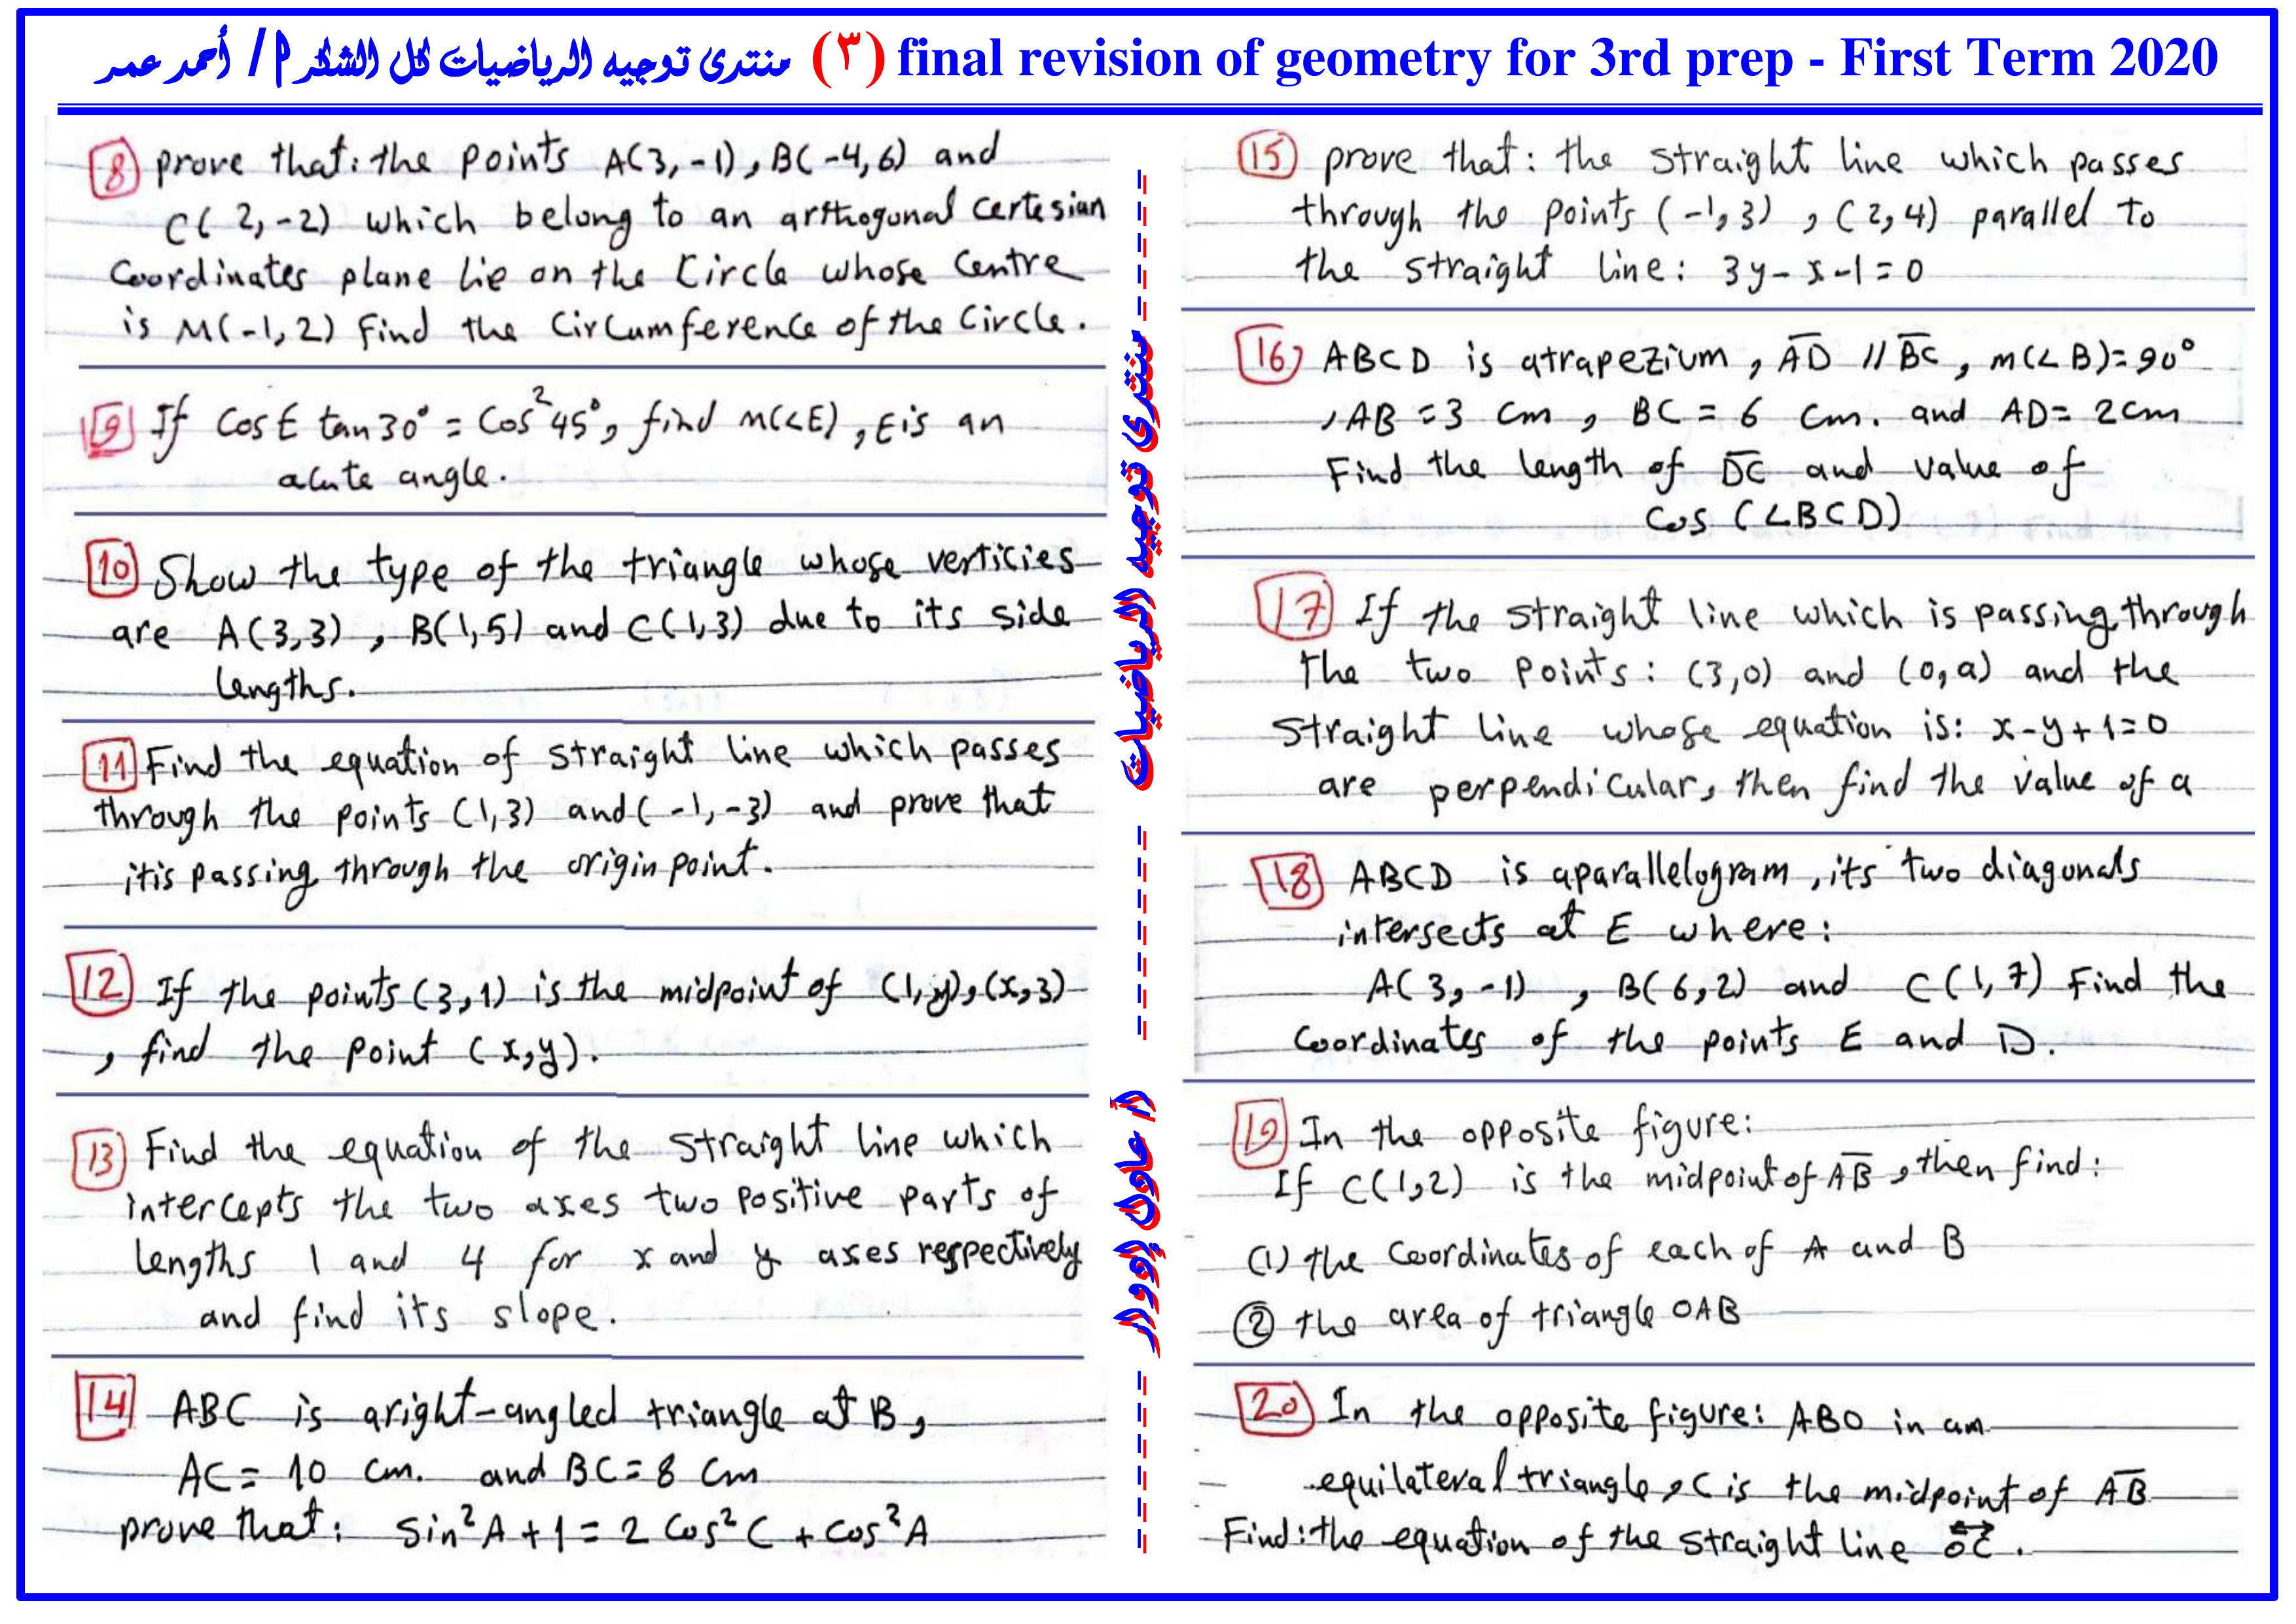 منتدى توجيه الرياضيات لكل الشكر أ / أحمد عمر (٣) final revision of geometry for 3rd prep - First Term 2020
8 prove that: the points A(3,-1), B(-4,6) and
C(2,-2) which belong to an orthogonal certesian
Coordinates plane lie on the Circle whose Centre
is M(-1,2) Find the Circumference of the Circle.
9 If Cos E tan 30° = Cos² 45°, find m(∠E), E is an
acute angle.
10 Show the type of the triangle whose verticies
are A(3,3), B(1,5) and C(1,3) due to its side
lengths.
11 Find the equation of straight line which passes
through the points (1,3) and (-1,-3) and prove that
itis passing through the origin point.
12 If the points (3,1) is the midpoint of (1,y), (x,3)
, find the point (x,y).
13 Find the equation of the straight line which
intercepts the two axes two positive parts of
lengths 1 and 4 for x and y axes respectively
and find its slope.
14 ABC is aright-angled triangle at B,
AC = 10 cm. and BC = 8 Cm
prove that: Sin² A + 1 = 2 Cos² C + Cos² A
منتدى توجيه الرياضيات
أ عادل إدوار
15 prove that: the straight line which passes
through the points (-1,3), (2,4) parallel to
the straight line: 3y - x - 1 = 0
16 ABCD is atrapezium, AD // BC, m(∠B) = 90°
, AB = 3 Cm, BC = 6 Cm. and AD = 2 cm
Find the length of DC and value of
Cos (∠BCD)
17 If the straight line which is passing through
the two points: (3,0) and (0,a) and the
straight line whose equation is: x - y + 1 = 0
are perpendicular, then find the value of a
18 ABCD is aparallelogram, its two diagonals
intersects at E where:
A(3,-1), B(6,2) and C(1,7) Find the
Coordinates of the points E and D.
19 In the opposite figure:
If C(1,2) is the midpoint of AB, then find:
(1) the Coordinates of each of A and B
② the area of triangle OAB
20 In the opposite figure: ABO in am
equilateral triangle, C is the midpoint of AB
Find: the equation of the straight line OC.